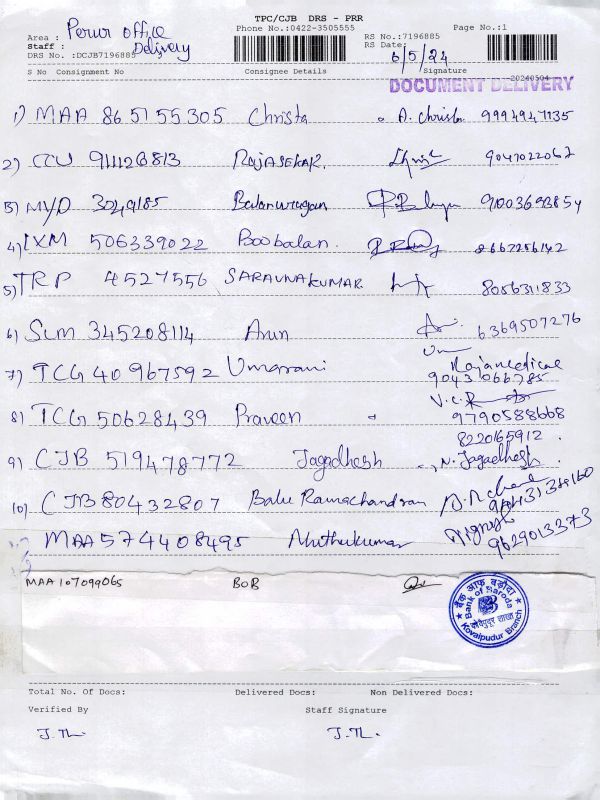 TPC/CJB DRS - PRR
Area : Perur office Phone No.:0422-3505555 RS No.:7196885 Page No.:1
Staff : Delivery RS Date: 6/5/24
DRS No. :DCJB7196885
S No Consignment No Consignee Details Signature 20240504
DOCUMENT DELIVERY
1) MAA 865155305 Christa A. Christa 9994947135
2) CCU 911126813 RAJASEKAR. 9047022067
3) MYD 3249185 Balamurugan
4) IXM 506339022 Boobalan. 8667256142
5) TRP 4527556 SARAVNAKUMAR 8056311833
6) SLM 345208114 Arun 6369507276
7) TCG 40967592 Umarani Rajamedical
9043066785
8) TCG 50628439 Praveen V.C.R 9790588668
8220165912.
9) CJB 519478772 Jagadhesh N. Jagadhesh
10) CJB 80432807 Balu Ramachandran
MAA 574408495 Muthukumar Vignesh 9629013373
MAA 107099065 BOB
बैंक ऑफ़ बड़ौदा
Bank of Baroda
कोवैपुदूर शाखा
Kovaipudur Branch
Total No. Of Docs: Delivered Docs: Non Delivered Docs:
Verified By Staff Signature
J.TL. J.TL.